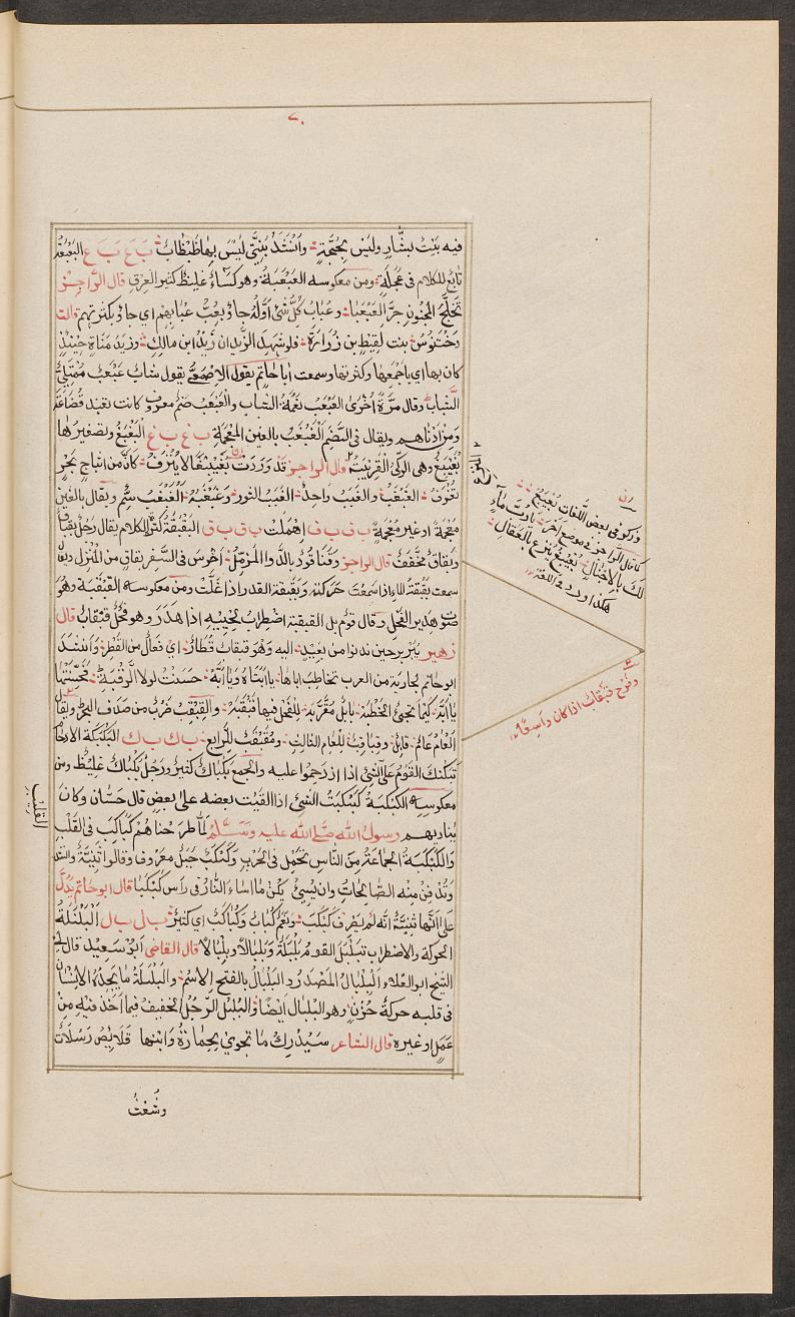 ٧٠
فيه بنت بشار وليس بحجة وأنشد بنيتي ليس بها ظبظاب ب ع ب ع البعبعة
تتابع للكلام في عجلة ومن معكوسه العبعبة وهو كساء غليظ كثير الغزل قال الراجز
تخلج المجنون جر العبعبا وعباب كل شيء أوله جاؤ بعب عبابهم اي جاؤ بكثرتهم قالت
دختنوس بنت لقيط بن زرارة فلو شهد الزيدان زيد ابن مالك وزيد مناة حين
كان بها اي باجمعها وكثرتها وسمعت أبا حاتم يقول الاصمعي يقول شاب عبعب ممتلئ
الشباب وقال مرة أخرى العبعب نعمة الشباب والعبعب صنم معروف كانت تعبد قضاعة
ومن اذناهم ويقال في الصنم الغبغب بالغين المعجمة ب غ ب غ البغبغ وتصغيرها
بغيبغ وهي الركي القريبة قال الراجز قد وردت بغيبغا لا ينزف كان من اثباج بحر
تغرف الغبغب والغبب واحد الغبب للثور وغبغبة الغبغب سم ويقال بالعين
معجمة او غير معجمة ب ف ب ف اهملت ب ق ب ق البقبقة كثرة الكلام يقال رجل بقباق
وبقاق مخفف قال الراجز وقد اقود بالدوا المزمل اخرس في السفر بقاق من المنزل ويقال
سمعت بقبقة الماء اذا سمعت حركته وبقبقة القدر اذا غلت ومن معكوسه القبقبة وهو
صوت هدير الفحل وقال قوم بل القبقبة اضطراب لحييه اذا هدر وهو فحل قبقاب قال
زهير بربر حين يدنوا من بعيد اليه وهو قبقاب قطار اي فعال من القطر وأنشد
ابو حاتم لجارية من العرب تخاطب اباها يا ابتاه ويا ابه حسنت لولا الرقبة فحسنها
يا ابة كيما تجئ الخطبة بابل مقربة للفحل فيها قبقبة والقبقب ضرب من صدف البحر ويقال
العام عام قابل وقباقب للعام الثالث ومقبقب للرابع ب ك ب ك البكبكة الازدحام
تبكبك القوم على الشئ اذا ازدحموا عليه والجمع بكباك كثير ورجل بكباك غليظ ومن
معكوسه الكبكبة كبكبت الشئ اذا القيت بعضه على بعض قال حسان وكان
يناديهم رسول الله صلى الله عليه وسلم لما طرحناهم كباكب في القلب
والكبكبة الجماعة من الناس تحمل في الحرب وكبكب جبل معروف وقالوا ثنية وانشد
وتدفن منه الصالحات وان يسيئ يكن ما اساء النار في راس كبكبا قال ابو حاتم يدل
على انها ثنية انه لم يصرف كبكب ونعم كباب وكباكب اي كثير ب ل ب ل البلبلة
الحركة والاضطراب تبلبل القوم بلبلة وبلبالا وبلبالا قال القاضي ابو سعيد قال لي
الشيخ ابو العلاء البلبال المصدر والبلبال بالفتح الاسم والبلبلة ما يجده الانسان
في قلبه حركة حزن وهو البلبال ايضا والبلبل الرجل الخفيف فيما اخذ فيه من
عمل او غيره قال الشاعر سيدرك ما تحوي بحمارة وابنها قلائص رسلات
وشعث
وذكر في بعض اللغات بغيبغ
كما قال الراجز في موضع آخر يا رب ماء
لك بالاجبال بغيبغ ينزع بالعقال
هكذا ورد في اللغة
وفرج قبقاب اذا كان واسعا
القليب